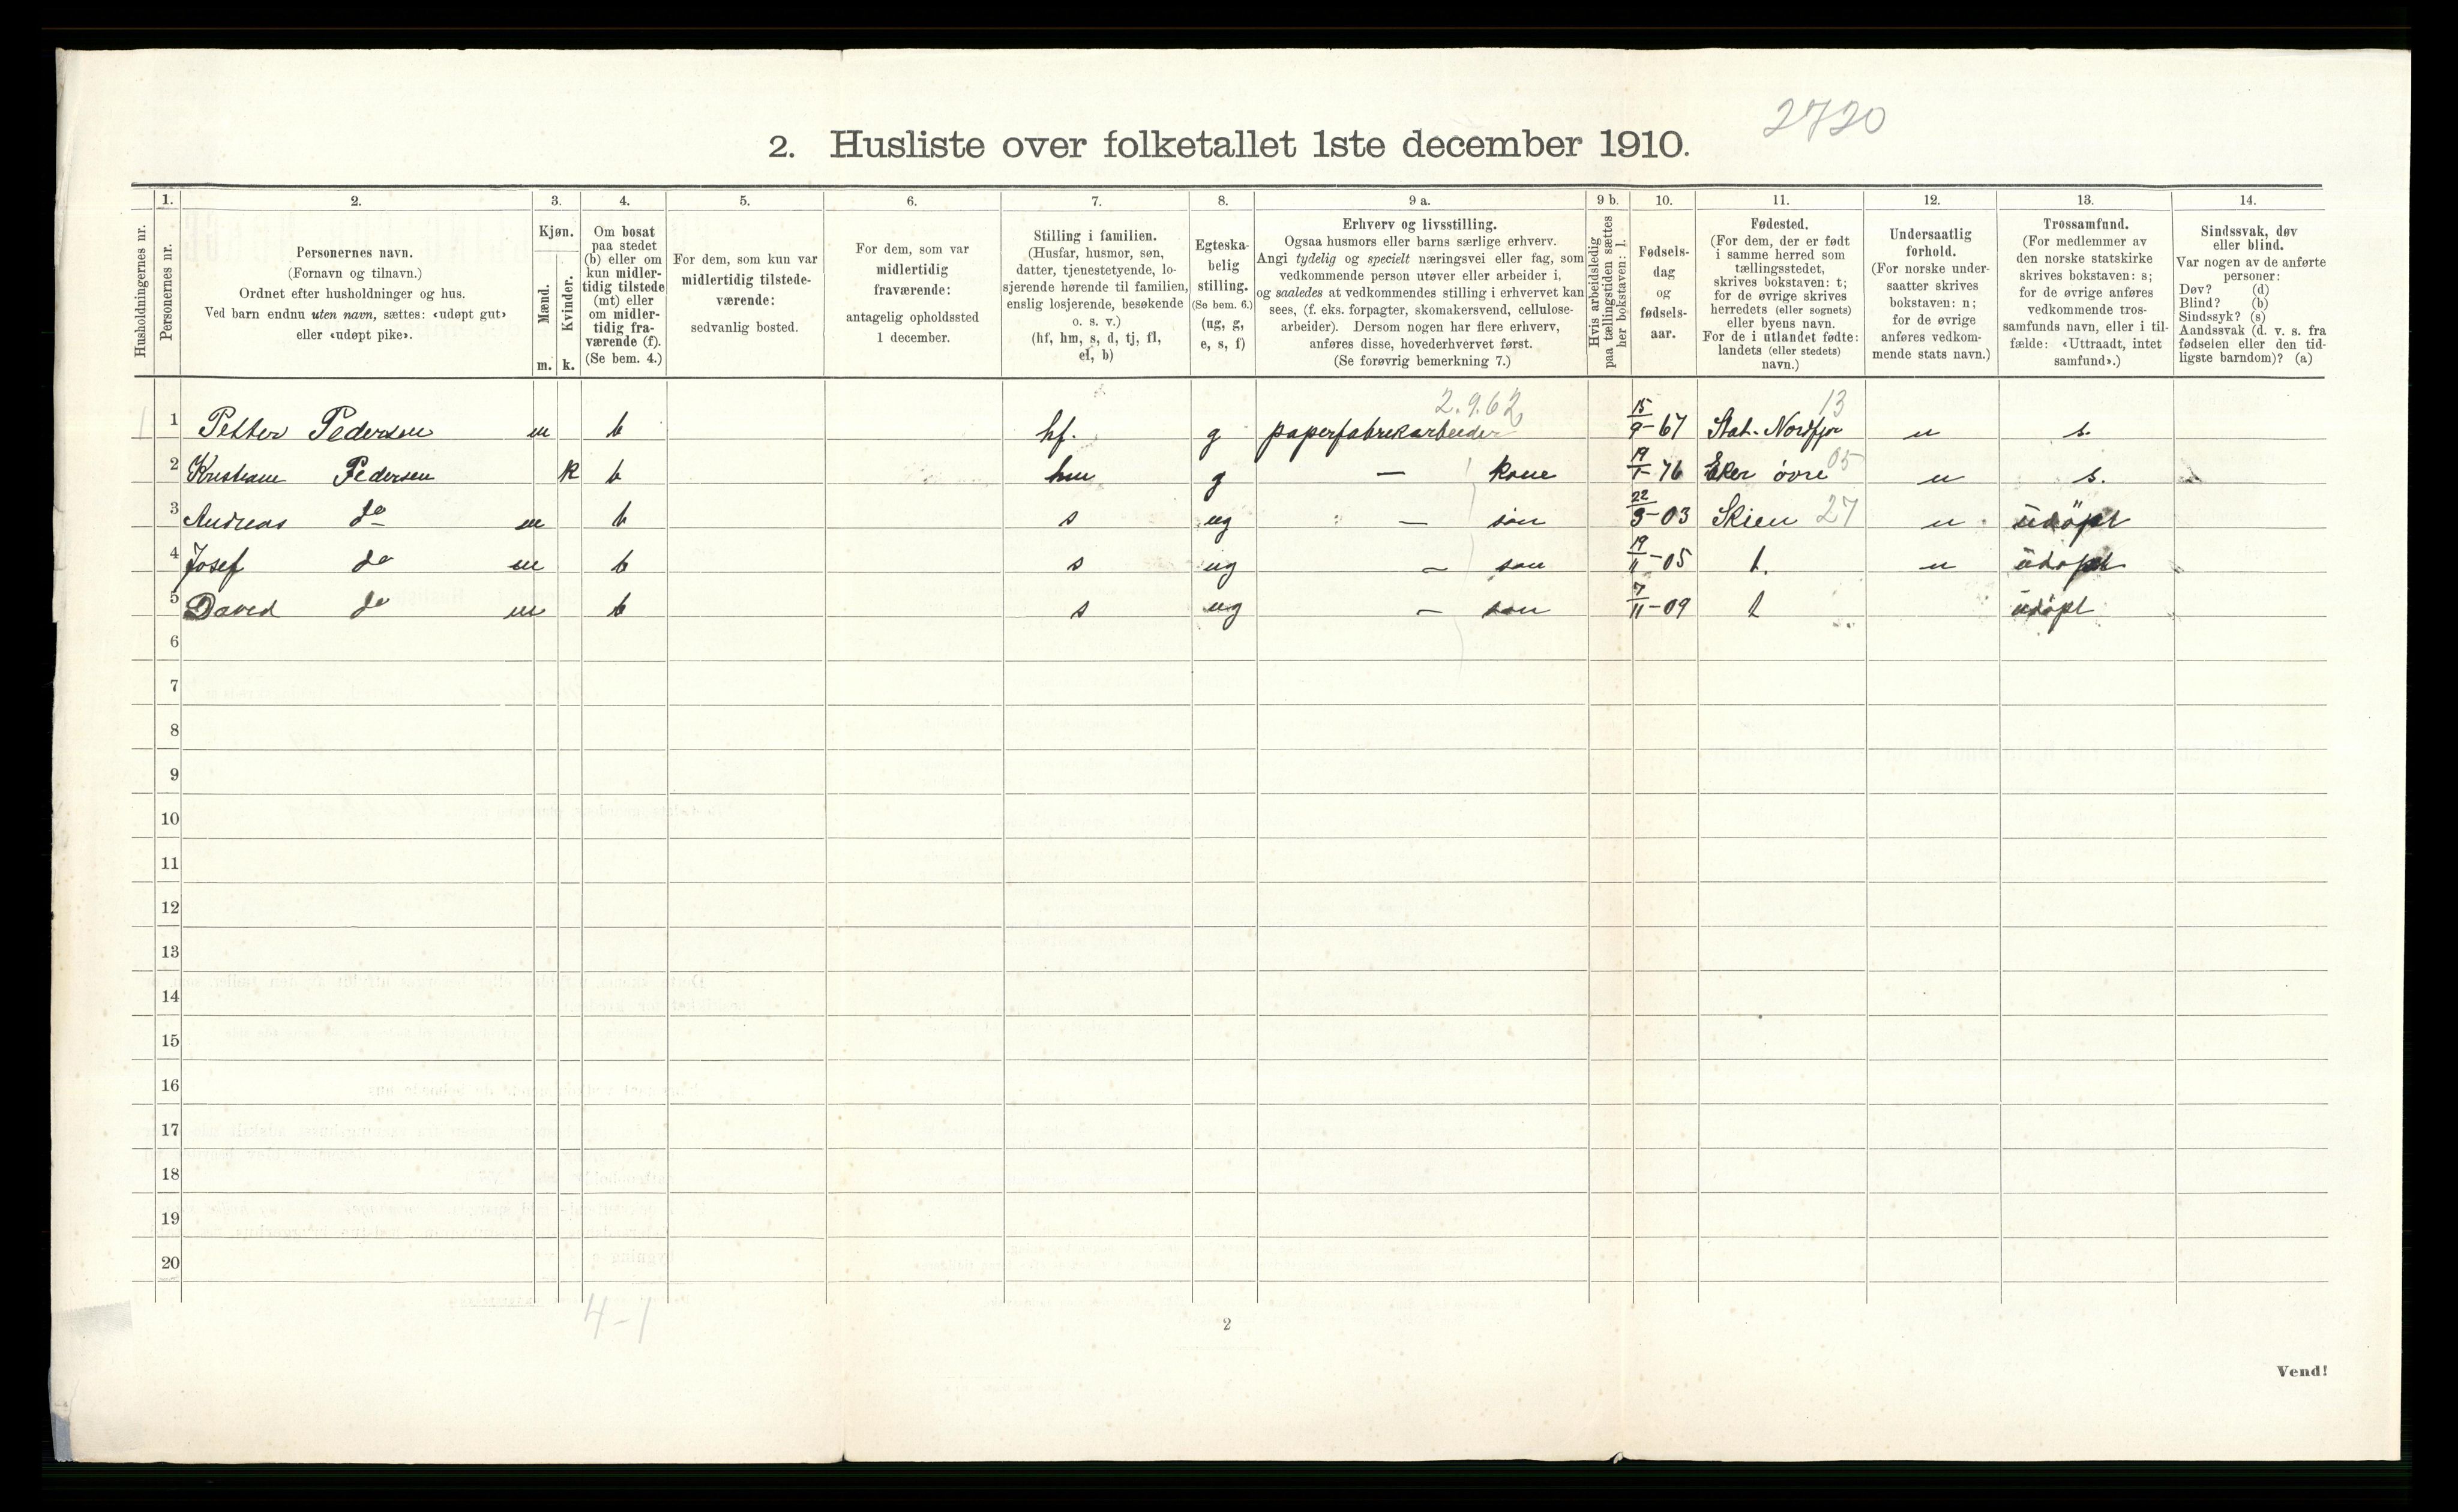 2720
2. Husliste over folketallet 1ste december 1910.
1. 2. 3. 4. 5. 6. 7. 8. 9 a. 9 b. 10. 11. 12. 13. 14.
Husholdningernes nr.
Personernes nr.
Personernes navn.
(Fornavn og tilnavn.)
Ordnet efter husholdninger og hus.
Ved barn endnu uten navn, sættes: «udøpt gut»
eller «udøpt pike».
Kjøn.
Mænd.
Kvinder.
m. k.
Om bosat
paa stedet
(b) eller om
kun midler-
tidig tilstede
(mt) eller
om midler-
tidig fra-
værende (f).
(Se bem. 4.)
For dem, som kun var
midlertidig tilstede-
værende:
sedvanlig bosted.
For dem, som var
midlertidig
fraværende:
antagelig opholdssted
1 december.
Stilling i familien.
(Husfar, husmor, søn,
datter, tjenestetyende, lo-
sjerende hørende til familien,
enslig losjerende, besøkende
o. s. v.)
(hf, hm, s, d, tj, fl,
el, b)
Egteska-
belig
stilling.
(Se bem. 6.)
(ug, g,
e, s, f)
Erhverv og livsstilling.
Ogsaa husmors eller barns særlige erhverv.
Angi tydelig og specielt næringsvei eller fag, som
vedkommende person utøver eller arbeider i,
og saaledes at vedkommendes stilling i erhvervet kan
sees, (f. eks. forpagter, skomakersvend, cellulose-
arbeider). Dersom nogen har flere erhverv,
anføres disse, hovederhvervet først.
(Se forøvrig bemerkning 7.)
Hvis arbeidsledig
paa tællingstiden sættes
her bokstaven: l.
Fødsels-
dag
og
fødsels-
aar.
Fødested.
(For dem, der er født
i samme herred som
tællingsstedet,
skrives bokstaven: t;
for de øvrige skrives
herredets (eller sognets)
eller byens navn.
For de i utlandet fødte:
landets (eller stedets)
navn.)
Undersaatlig
forhold.
(For norske under-
saatter skrives
bokstaven: n;
for de øvrige
anføres vedkom-
mende stats navn.)
Trossamfund.
(For medlemmer av
den norske statskirke
skrives bokstaven: s;
for de øvrige anføres
vedkommende tros-
samfunds navn, eller i til-
fælde: «Uttraadt, intet
samfund».)
Sindssvak, døv
eller blind.
Var nogen av de anførte
personer:
Døv? (d)
Blind? (b)
Sindssyk? (s)
Aandssvak (d. v. s. fra
fødselen eller den tid-
ligste barndom)? (a)
2.9.62 13
1 1 Petter Pedersen m b hf. g paperfabrekarbeider 15/9-67 Stat-Nordfjor n s.
2 Kristiane Pedersen k b hm g — kone 19/1-76 Eker øvre 05 n s.
3 Andreas do m b s ug — søn 22/3-03 Skien 27 n udöpt
4 Josef do m b s ug — søn 19/11-05 t. n udøpt
5 David do m b s ug — søn 7/11-09 t udøpt
6
7
8
9
10
11
12
13
14
15
16
17
18
19
20
4-1
2
Vend!